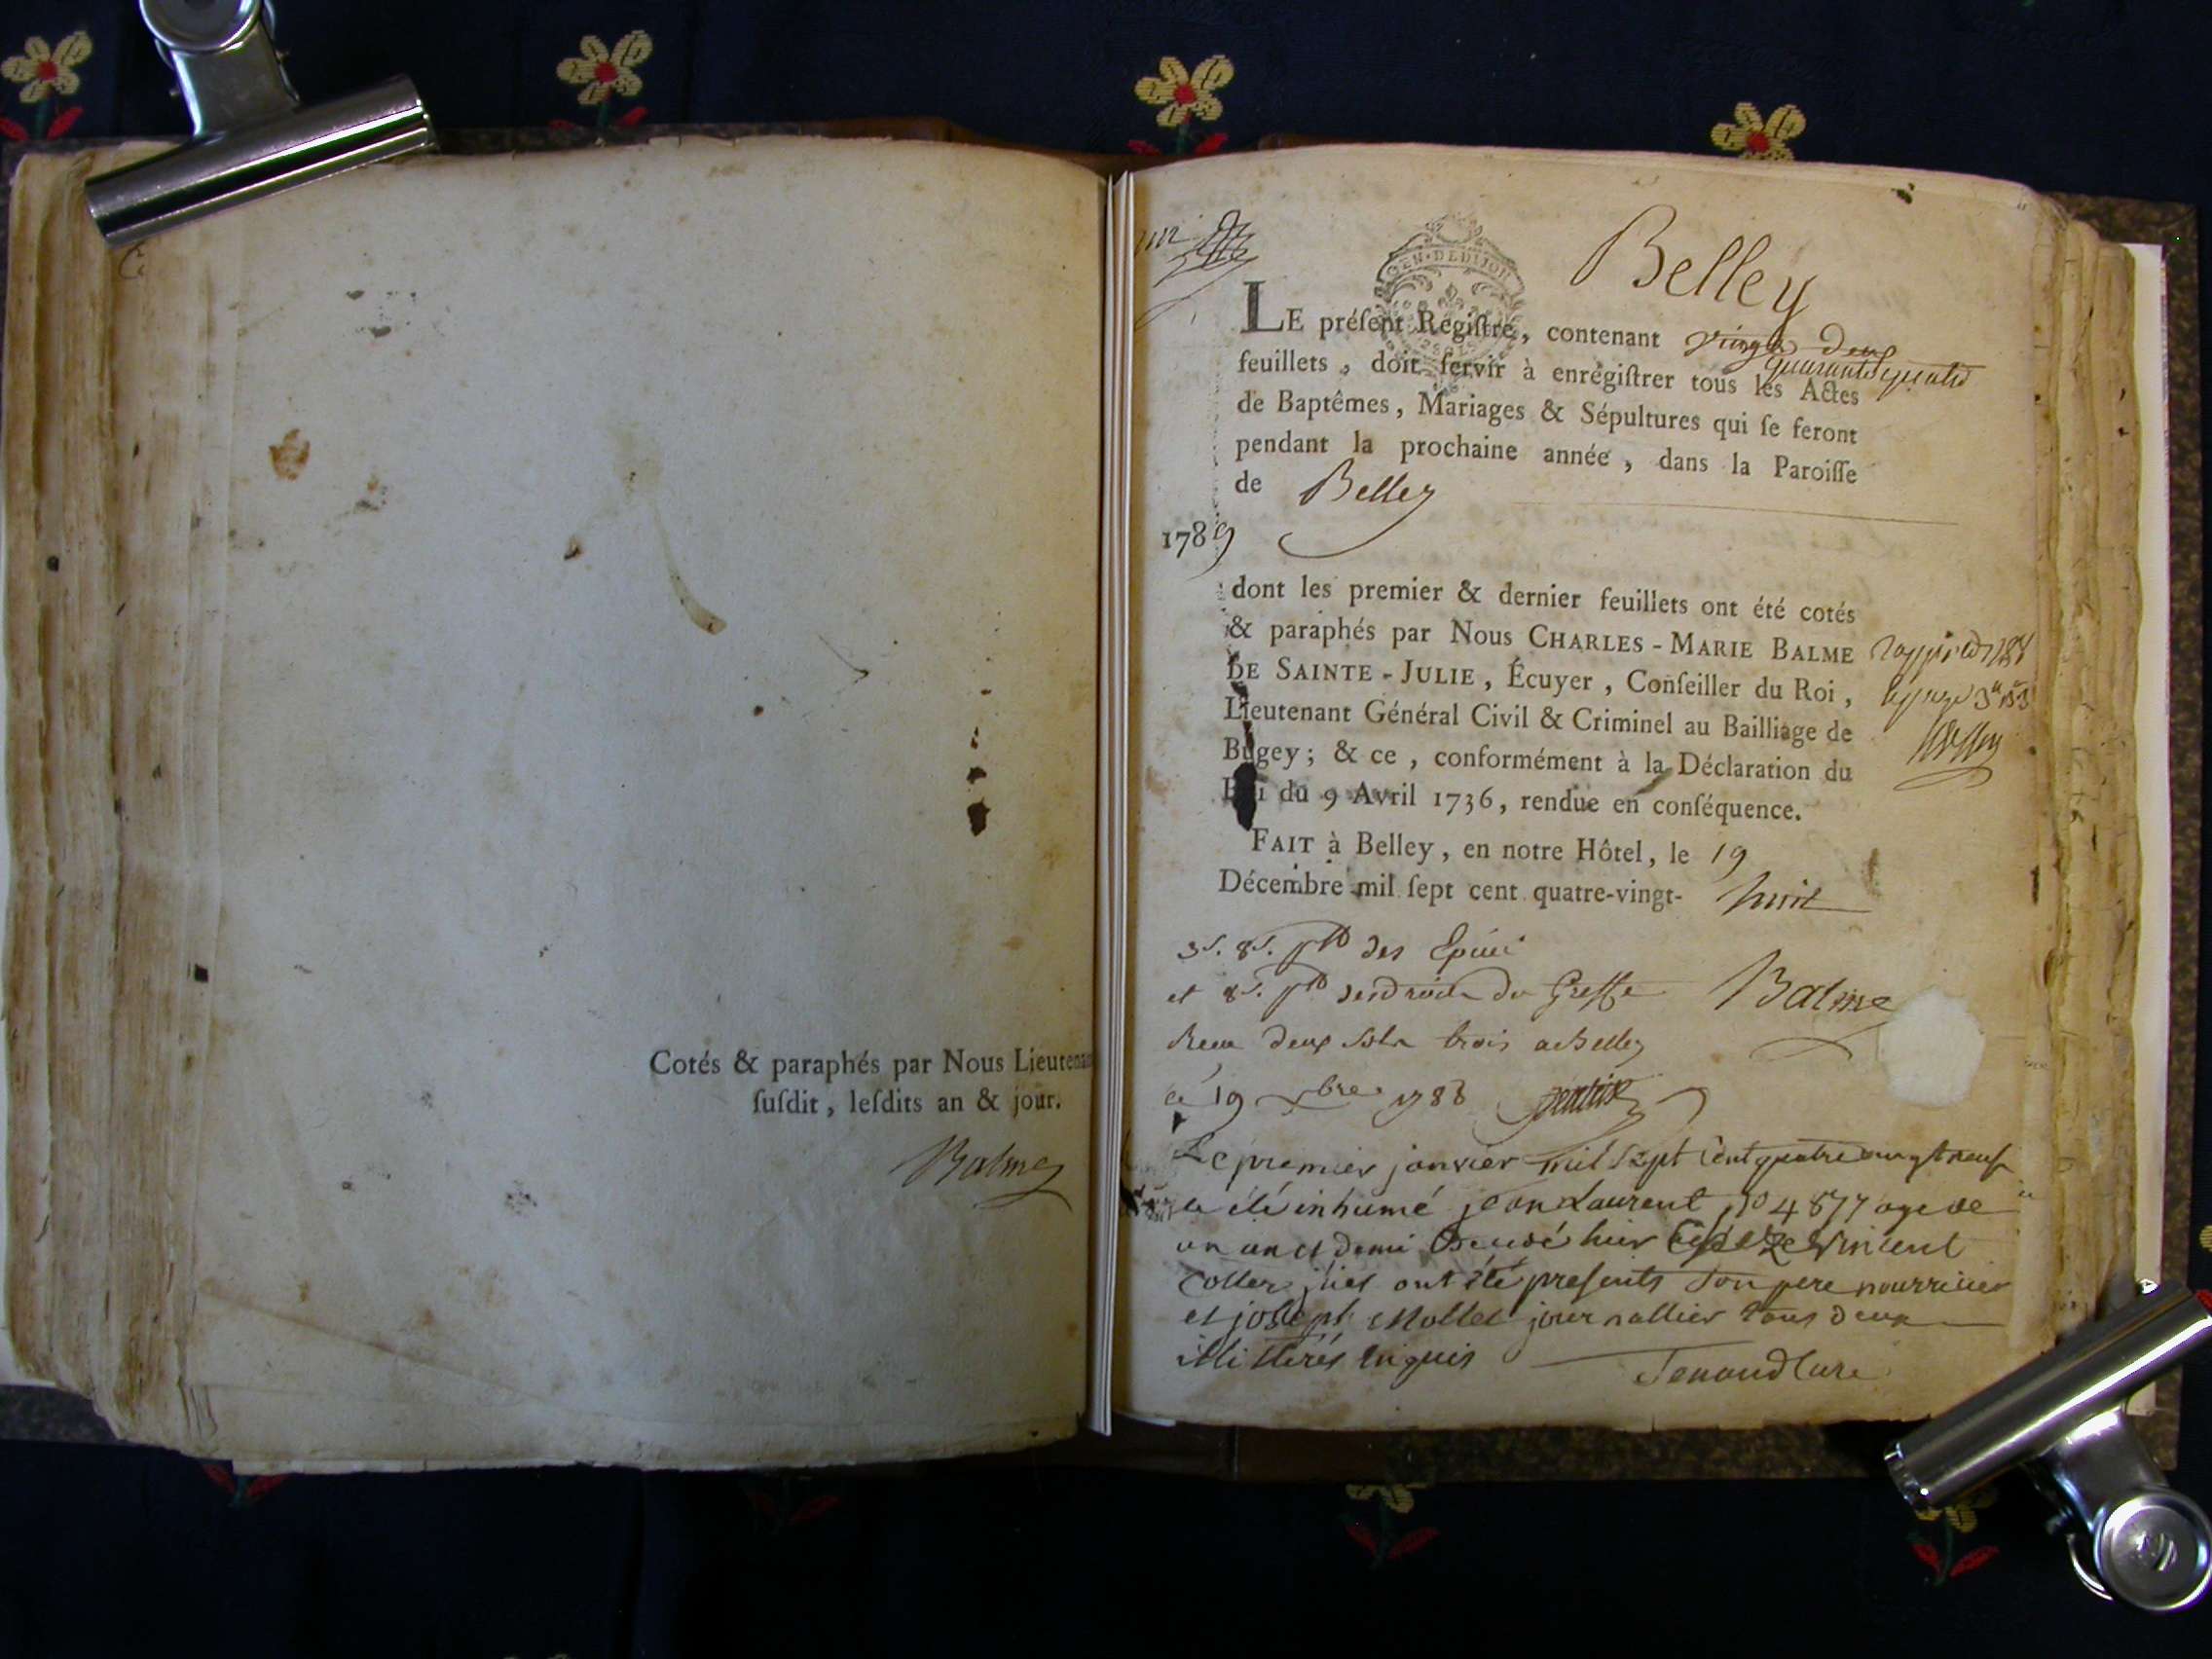 Cotés & paraphés par Nous Lieutenan
ſuſdit, leſdits an & jour.
Balme
GEN. DE DIJON
Belley
LE préſent Regiſtre, contenant vingt deux
quarante quatre
feuillets, doit ſervir à enregiſtrer tous les Actes
de Baptêmes, Mariages & Sépultures qui ſe feront
pendant la prochaine année, dans la Paroiſſe
de Belley
1789
dont les premier & dernier feuillets ont été cotés
& paraphés par Nous CHARLES-MARIE BALME
DE SAINTE-JULIE, Écuyer, Conſeiller du Roi,
Lieutenant Général Civil & Criminel au Bailliage de
Bugey; & ce, conformément à la Déclaration du
Roi du 9 Avril 1736, rendue en conſéquence.
FAIT à Belley, en notre Hôtel, le 19
Décembre mil ſept cent quatre-vingt- huit
des Epices
et du Greffe
Balme
Reçu deux sols trois a Belley
ce 19 xbre 1788
Le premier janvier mil sept cent quatre vingt neuf
a été inhumé jean Laurent no 4877 age de
un an et demi décédé hier chez Vincent
ont été presents son pere nourricier
et joseph Mollet journallier tous deux
illitterés enquis
Tenand Curé